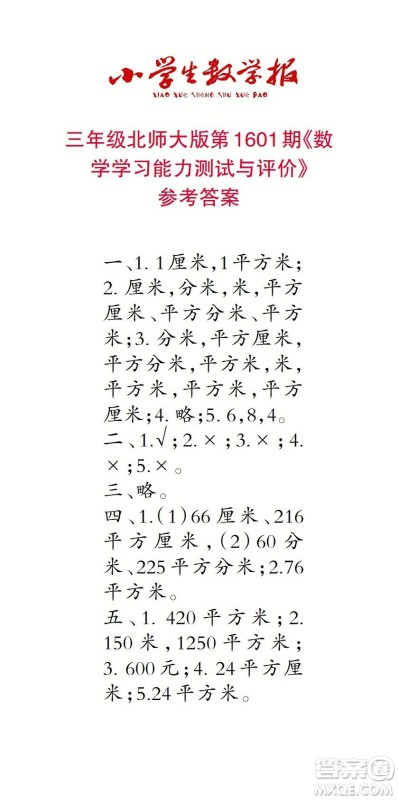 小学生数学报
XIAO XUE SHENG SHU XUE BAO
三年级北师大版第1601期《数
学学习能力测试与评价》
参考答案
一、1. 1厘米,1平方米;
2. 厘米,分米,米,平方
厘米、平方分米、平方
米;3. 分米,平方厘米,
平方分米,平方米,米,
平方米,平方米,平方
厘米;4. 略;5. 6,8,4。
二、1.√;2.×;3.×;4.
×;5.×。
三、略。
四、1.(1)66厘米、216
平方厘米,(2)60分
米、225平方分米;2.76
平方米。
五、1. 420平方米;2.
150米,1250平方米;
3. 600元;4. 24平方厘
米;5.24平方米。
答案圈
MXQE.COM